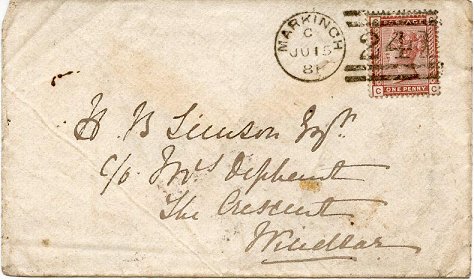 MARKINCH
C
JU 15
81
POSTAGE
C C
ONE PENNY
H B Simson Esqr.
c/o Mrs Oliphant
The Crescent
Windsor